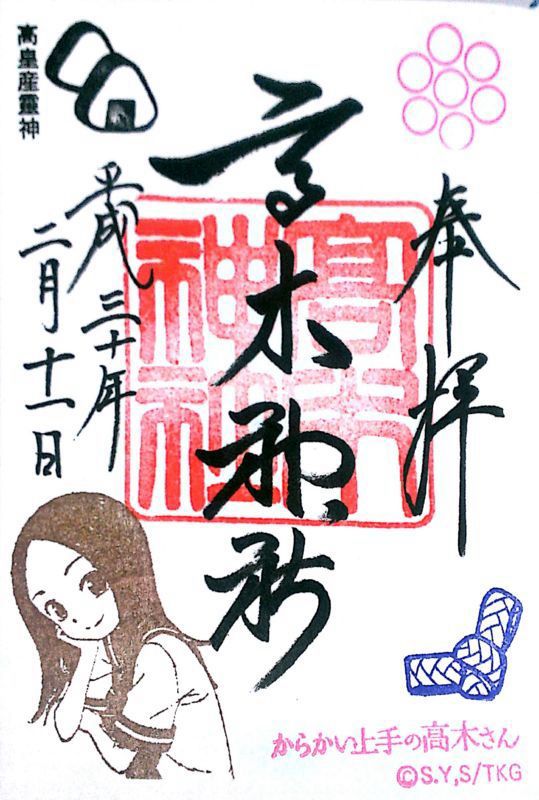 奉拝
高木神社
高木
神社
平成三十年
二月十一日
高皇産靈神
からかい上手の高木さん
©S.Y,S/TKG